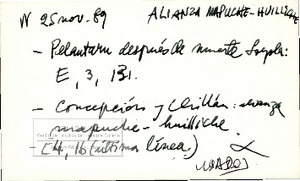 25 nov. 89 ALIANZA MAPUCHE-HUILLICHE
- Pelantaru después de muerte Loyola:
E, 3, 131.
- Concepción y Chillán: alianza
mapuche-huilliche.
E4, 16 (última línea)